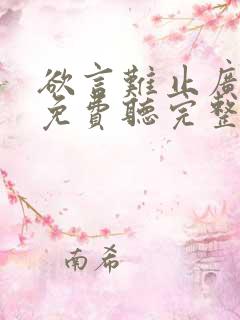 欲言難止廣
免費聽完整
南希